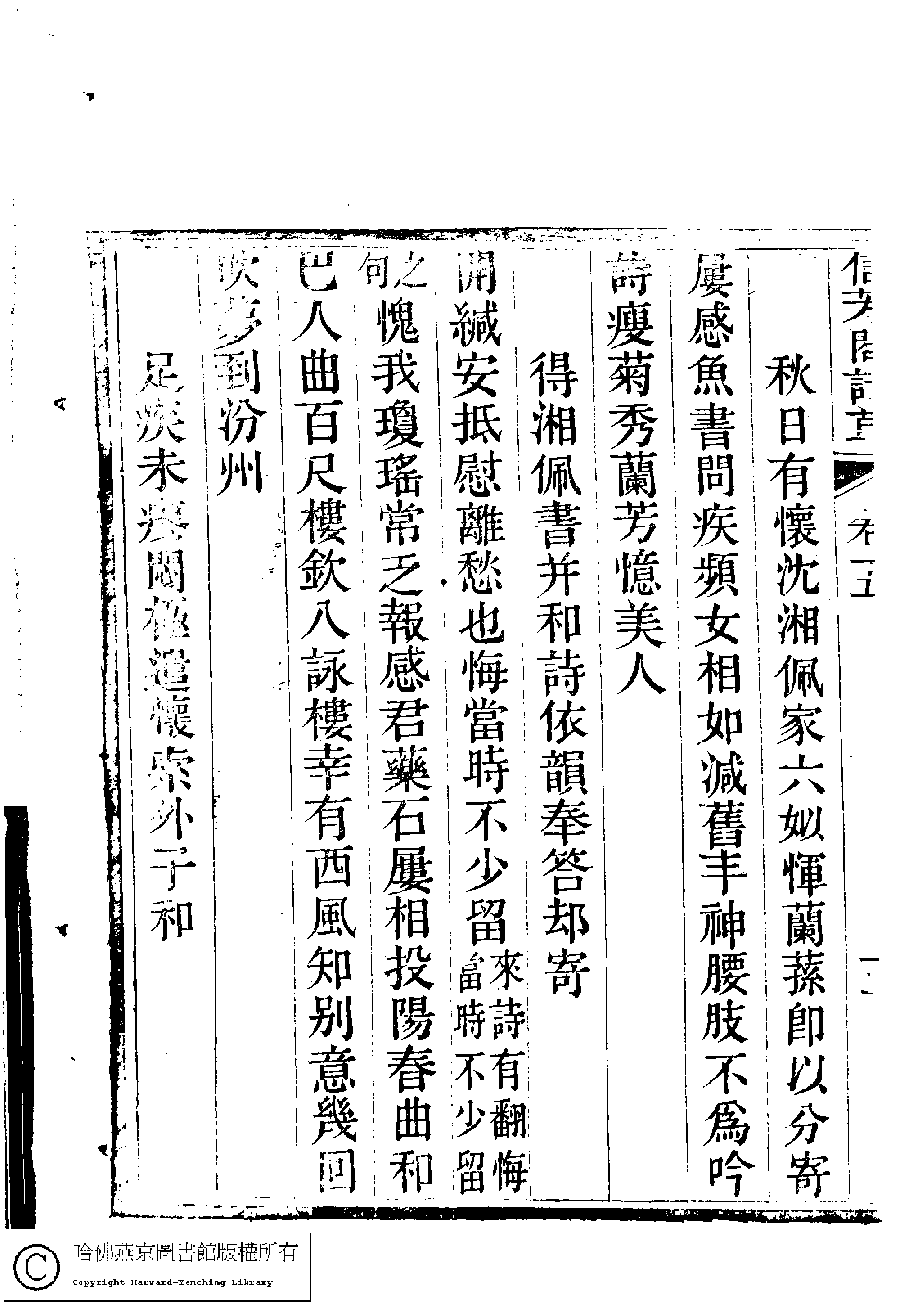 信芳閣詩草
卷五
秋日有懷沈湘佩家六姒惲蘭蓀卽以分寄
屢感魚書問疾頻女相如減舊丰神腰肢不爲吟
詩瘦菊秀蘭芳憶美人
得湘佩書并和詩依韻奉答却寄
開緘安抵慰離愁也悔當時不少留來詩有翻悔當時不少留
之句愧我瓊瑤常乏報感君藥石屢相投陽春曲和
巴人曲百尺樓欽八詠樓幸有西風知別意幾回
吹夢到汾州
足疾未痊悶極遣懷索外子和
哈佛燕京圖書館版權所有
Copyright Harvard-Yenching Library